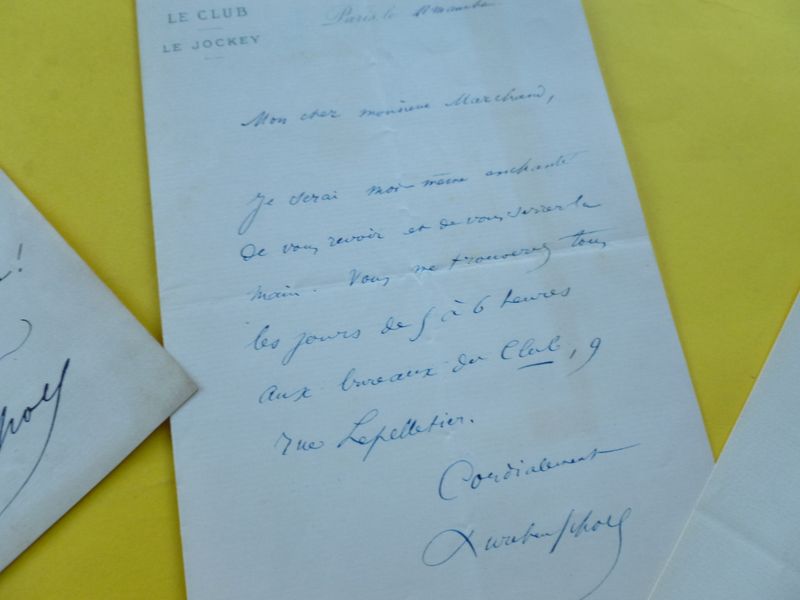 LE CLUB
LE JOCKEY
Paris, le
Mon cher monsieur Marchand,
Je serai moi-même enchanté
de vous revoir et de vous serrer la
main. Vous me trouverez tous
les jours de 5 à 6 heures
aux bureaux du Club, 9
rue Lepelletier.
Cordialement
Aurélien Scholl